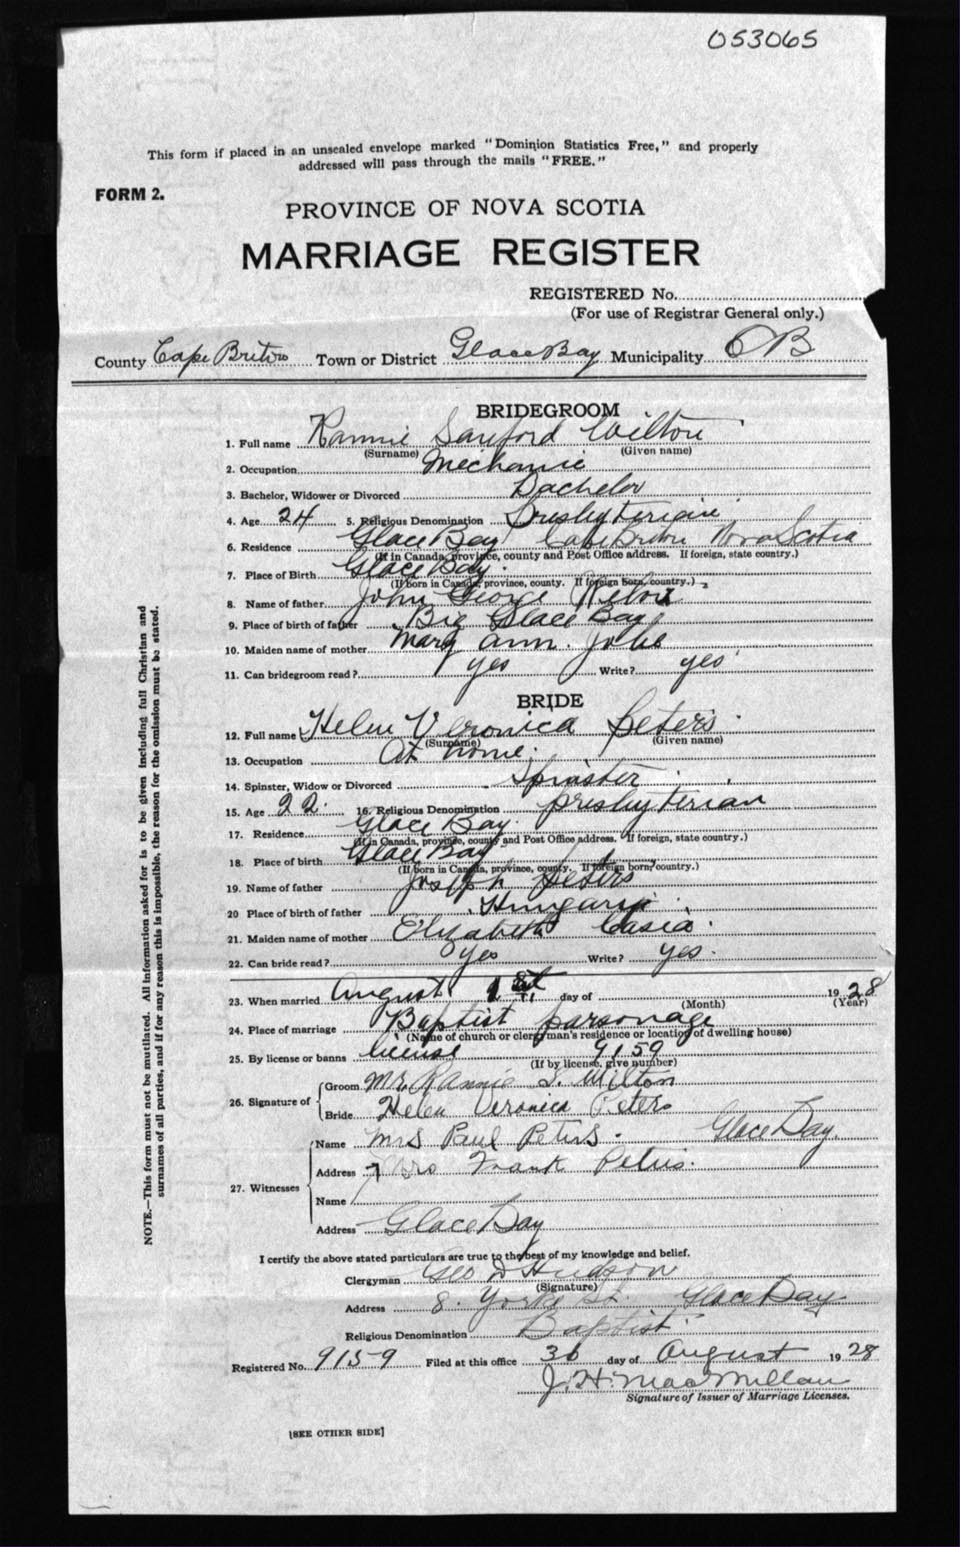 053065
This form if placed in an unsealed envelope marked "Dominion Statistics Free," and properly
addressed will pass through the mails "FREE."
FORM 2.
PROVINCE OF NOVA SCOTIA
MARRIAGE REGISTER
REGISTERED No.
(For use of Registrar General only.)
County Cape Breton Town or District Glace Bay Municipality CB
BRIDEGROOM
1. Full name Rannie Sanford Wilton
(Surname) (Given name)
2. Occupation Mechanic
3. Bachelor, Widower or Divorced Bachelor
4. Age 24 5. Religious Denomination Presbyterian
6. Residence Glace Bay Cape Breton Nova Scotia
(If in Canada, province, county and Post Office address. If foreign, state country.)
7. Place of Birth Glace Bay.
(If born in Canada, province, county. If foreign born, country.)
8. Name of father John George
9. Place of birth of father Big Glace Bay
10. Maiden name of mother Mary Ann.
11. Can bridegroom read? yes Write? yes
BRIDE
12. Full name Helen Veronica Peters
(Surname) (Given name)
13. Occupation At home.
14. Spinster, Widow or Divorced Spinster
15. Age 22. 16. Religious Denomination presbyterian
17. Residence Glace Bay.
(If in Canada, province, county and Post Office address. If foreign, state country.)
18. Place of birth Glace Bay
(If born in Canada, province, county. If foreign born, country.)
19. Name of father Joseph Peters
20 Place of birth of father Hungary
21. Maiden name of mother Elizabeth
22. Can bride read? yes Write? yes.
23. When married August 1st day of 1928
(Month) (Year)
24. Place of marriage Baptist parsonage
(Name of church or clergyman's residence or location of dwelling house)
25. By license or banns license 9159
(If by license, give number)
26. Signature of Groom Mr. Rannie S. Wilton
Bride Helen Veronica Peters
27. Witnesses Name Mrs Paul Peters. Glace Bay.
Address Mrs Frank Petrie.
Name
Address Glace Bay
I certify the above stated particulars are true to the best of my knowledge and belief.
Clergyman Geo D Hudson
(Signature)
Address 8. Yorke St. Glace Bay
Religious Denomination Baptist
Registered No. 9159 Filed at this office 30 day of August 1928
J. H. MacMillan
Signature of Issuer of Marriage Licenses.
[SEE OTHER SIDE]
NOTE.—This form must not be mutilated. All information asked for is to be given including full Christian and
surnames of all parties, and if for any reason this is impossible, the reason for the omission must be stated.